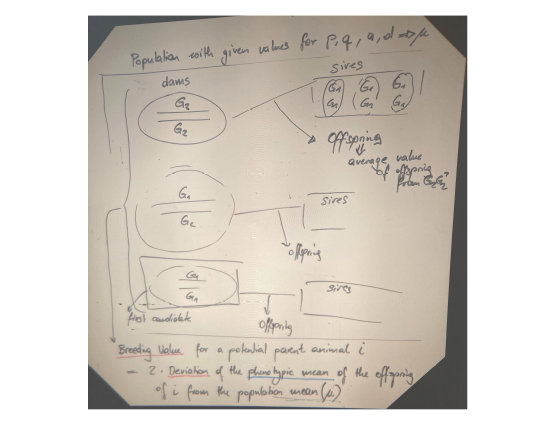 Population with given values for p, q, a, d => μ
dams
sires
G2
G2
G1 G1 G1
G1 G2 G1
Offspring
average value
of offspring
from G2G2
G1
G2
sires
Offspring
G1
G1
sires
first candidate
Offspring
Breeding Value for a potential parent animal i
- 2. Deviation of the phenotypic mean of the offspring
of i from the population mean (μ)